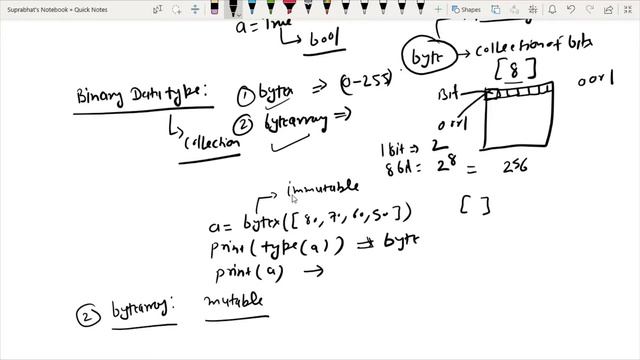 Suprabhat's Notebook » Quick Notes
a = True
bool
byte → collection of bits
[8]
Bit
0 or 1
0 or 1
Binary Data type:
① bytes ⇒ (0-255)
② bytearray ⇒
collection
1 bit ⇒ 2
8 bit = 2⁸ = 256
immutable
a = bytes([80, 70, 60, 50]) [ ]
print(type(a)) ⇒ byte
print(a) →
② bytearray: mutable